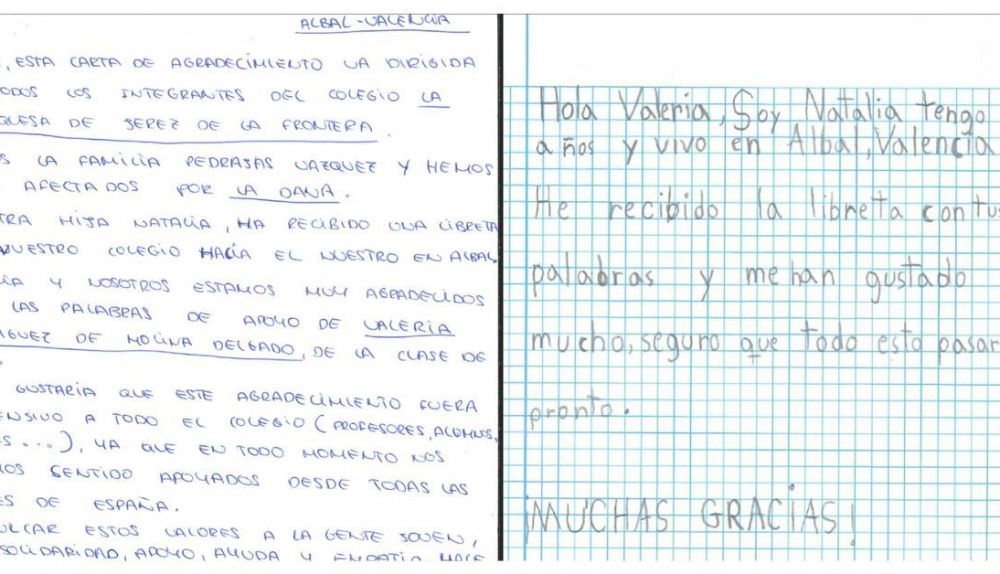 ALBAL-VALENCIA
, ESTA CARTA DE AGRADECIMIENTO VA DIRIGIDA
ODOS LOS INTEGRANTES DEL COLEGIO LA
QUESA DE JEREZ DE LA FRONTERA.
S LA FAMILIA PEDRAJAS VAZQUEZ Y HEMOS
AFECTADOS POR LA DANA.
TRA HIJA NATALIA, HA RECIBIDO UNA LIBRETA
VUESTRO COLEGIO HACÍA EL NUESTRO EN ALBAL
IA Y NOSOTROS ESTAMOS MUY AGRADECIDOS
LAS PALABRAS DE APOYO DE VALERIA
IGUEZ DE MOLINA DELGADO, DE LA CLASE DE
GUSTARIA QUE ESTE AGRADECIMIENTO FUERA
ENSIVO A TODO EL COLEGIO (PROFESORES, ALUMNOS,
S ...), YA QUE EN TODO MOMENTO NOS
MOS SENTIDO APOYADOS DESDE TODAS LAS
ES DE ESPAÑA.
ULCAR ESTOS VALORES A LA GENTE JOVEN,
SOLIDARIDAD, APOYO, AYUDA Y EMPATIA HACE
Hola Valeria, Soy Natalia tengo
años y vivo en Albal, Valencia
He recibido la libreta con tus
palabras y me han gustado
mucho, seguro que todo esto pasar
pronto.
¡MUCHAS GRACIAS!